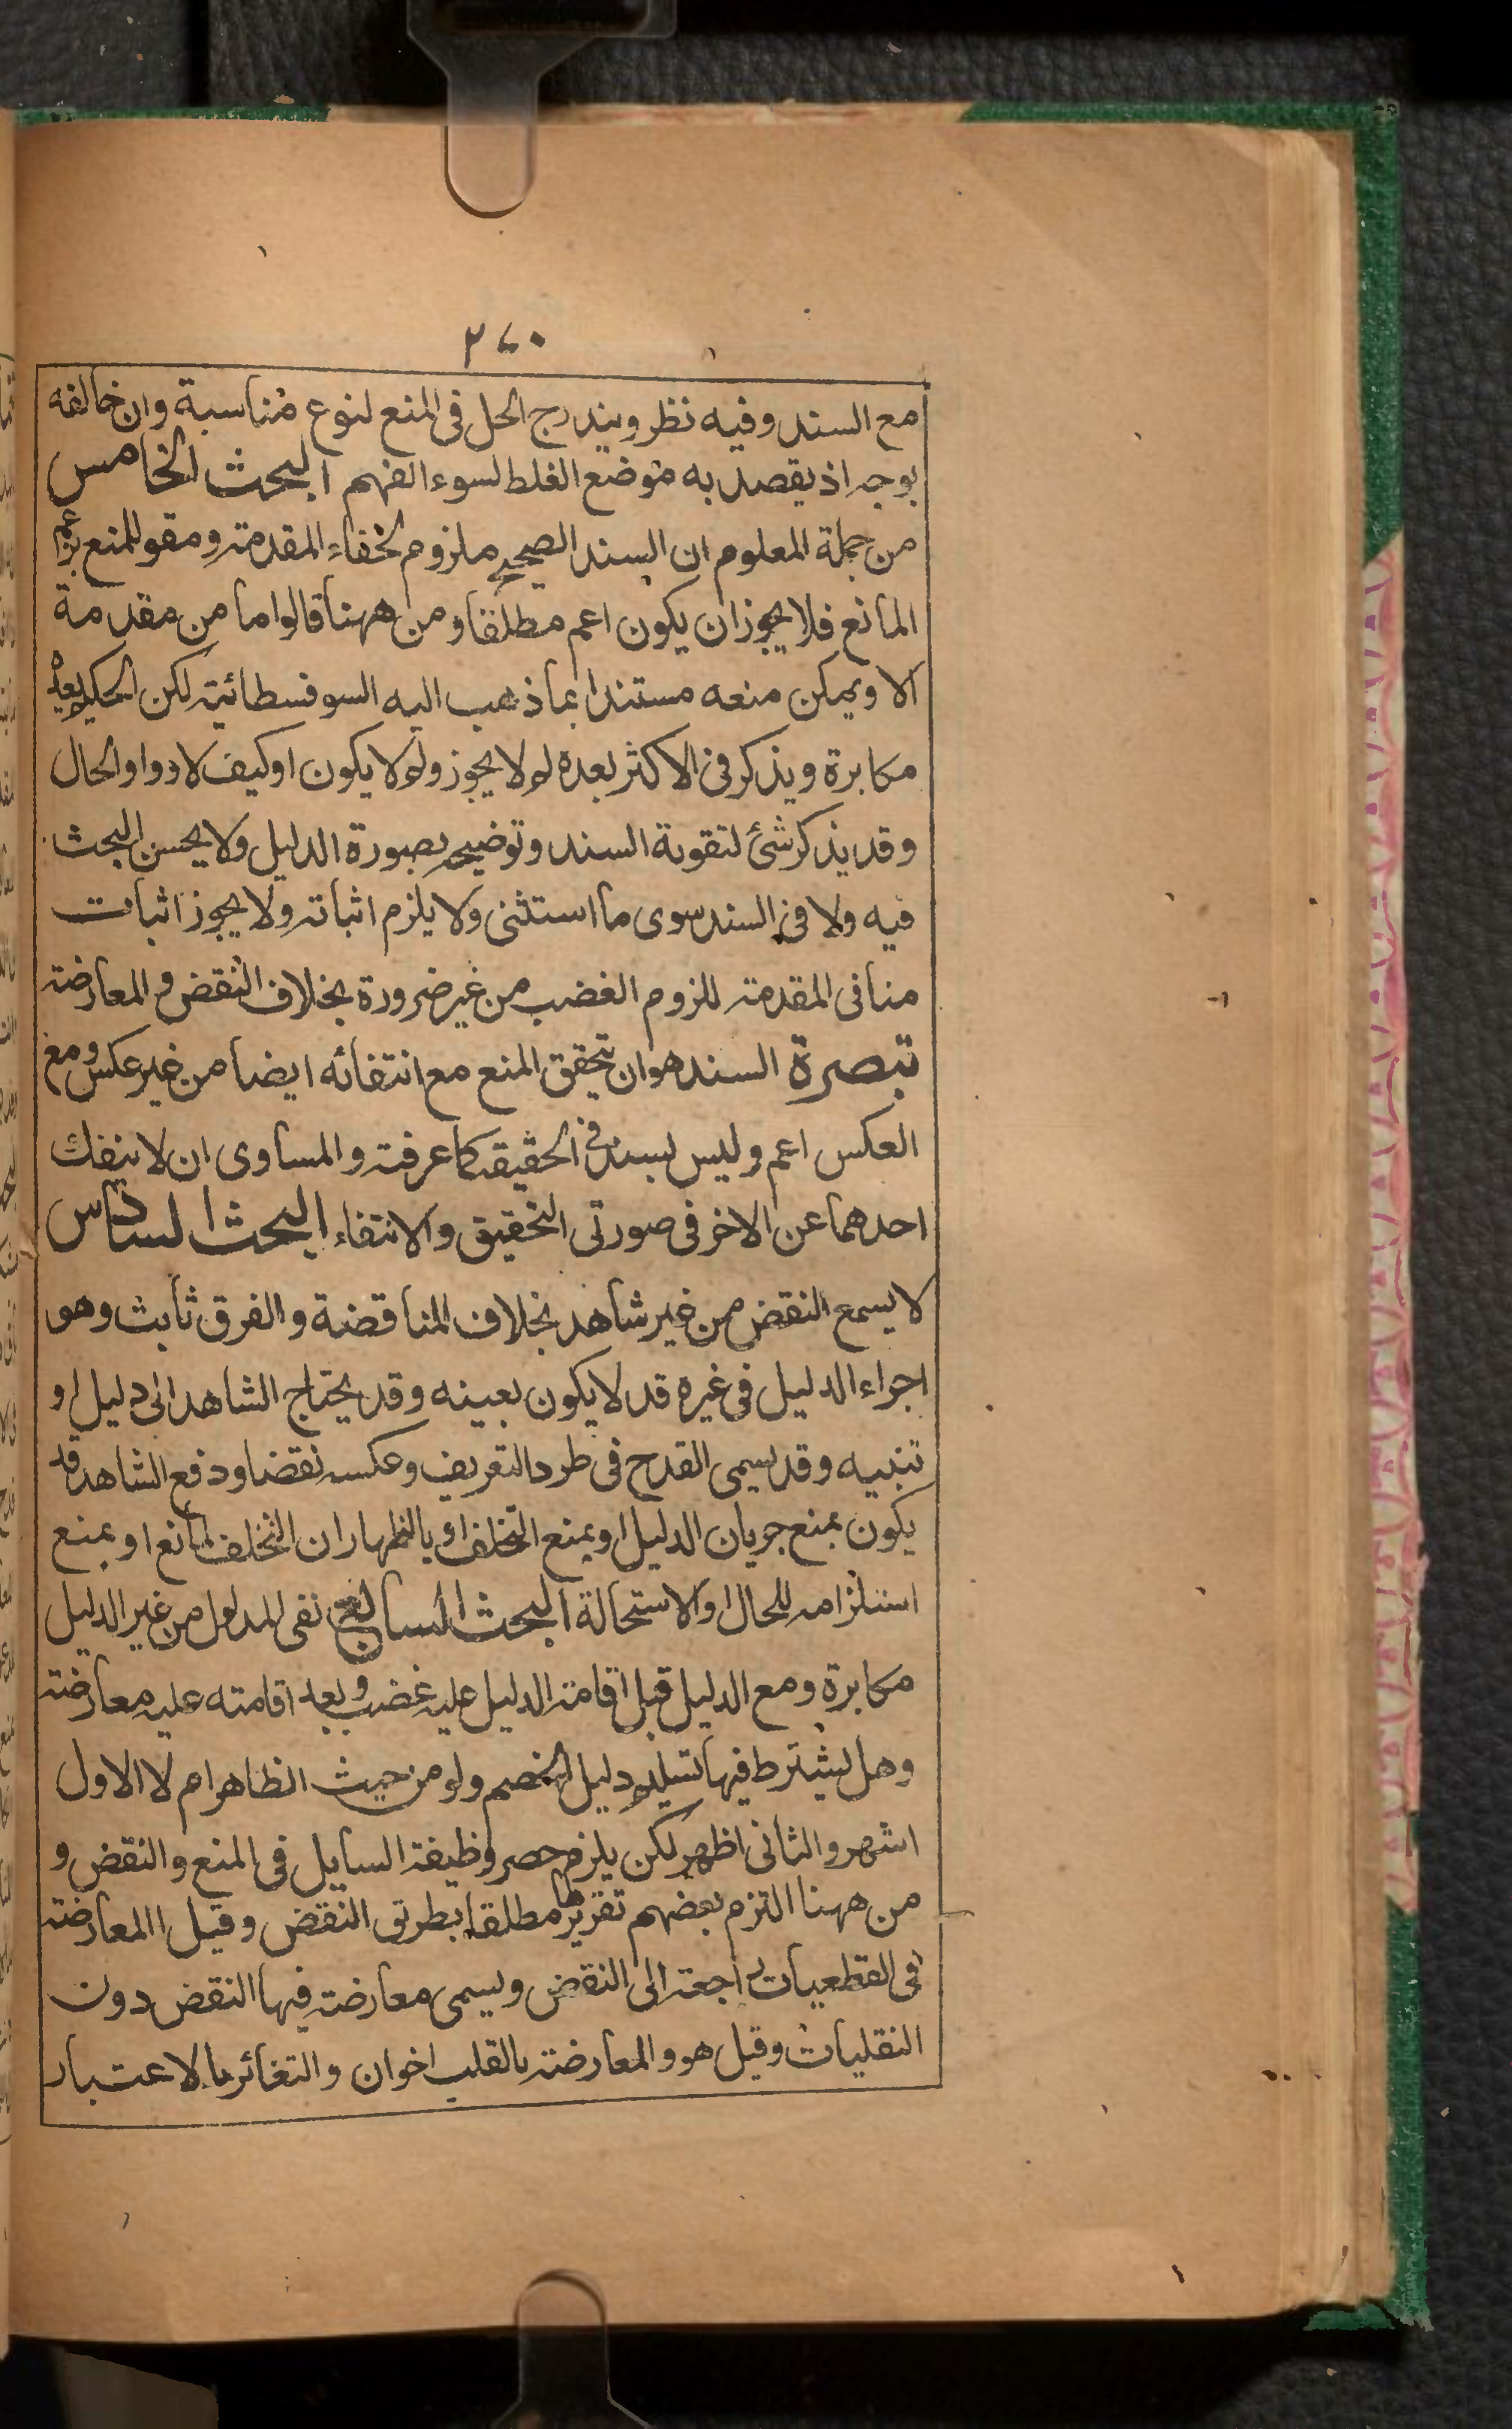 ٢٧٠
مع السند وفيه نظر ويندرج الحل فى المنع لنوع مناسبة وان خالفه
بوجه اذ يقصد به موضع الغلط لسوء الفهم البحث الخامس
من جملة المعلوم ان السند الصحيح ملزوم لخفاء المقدمة ومقو للمنع بزعم
المانع فلا يجوز ان يكون اعم مطلقا ومن ههنا قالوا ما من مقدمة
الا ويمكن منعه مستندا بما ذهب اليه السوفسطائية لكن الحكيم يعده
مكابرة ويذكر فى الاكثر بعده لم لا يجوز ولم لا يكون او كيف لا وواو الحال
وقد يذكر شئ لتقوية السند وتوضيحه بصورة الدليل ولا يحسن البحث
فيه ولا فى السند سوى ما استثنى ولا يلزم اثباته ولا يجوز اثبات
منافى المقدمة للزوم الغضب من غير ضرورة بخلاف النقض والمعارضة
تبصرة السند هو ان تحقق المنع مع انتفائه ايضا من غير عكس ومع
العكس اعم وليس بسند فى الحقيقة كما عرفته والمساوى ان لا ينفك
احدهما عن الاخر فى صورتى التحقيق والانتفاء البحث السادس
لا يسمع النقض من غير شاهد بخلاف المناقضة والفرق ثابت وهو
اجراء الدليل فى غيره قد لا يكون بعينه وقد يحتاج الشاهد الى دليل او
تنبيه وقد يسمى القدح فى طرد التعريف وعكسه نقضا ودفع الشاهد قد
يكون بمنع جريان الدليل او بمنع التخلف او بالظهار ان التخلف لمانع او بمنع
استلزامه للحال او الاستحالة البحث السابع نفى المدلول من غير الدليل
مكابرة ومع الدليل قبل اقامة الدليل عليه غضب وبعد اقامته عليه معارضة
وهل يشترط فيها تسليم دليل الخصم ولو من حيث الظاهر ام لا الاول
اشهر والثانى اظهر لكن يلزم حصر وظيفة السايل فى المنع والنقض و
من ههنا التزم بعضهم تقريرها مطلقا بطريق النقض وقيل المعارضة
فى القطعيات راجعة الى النقض ويسمى معارضة فيها النقض دون
النقليات وقيل هو والمعارضة بالقلب اخوان والتغائر بالاعتبار